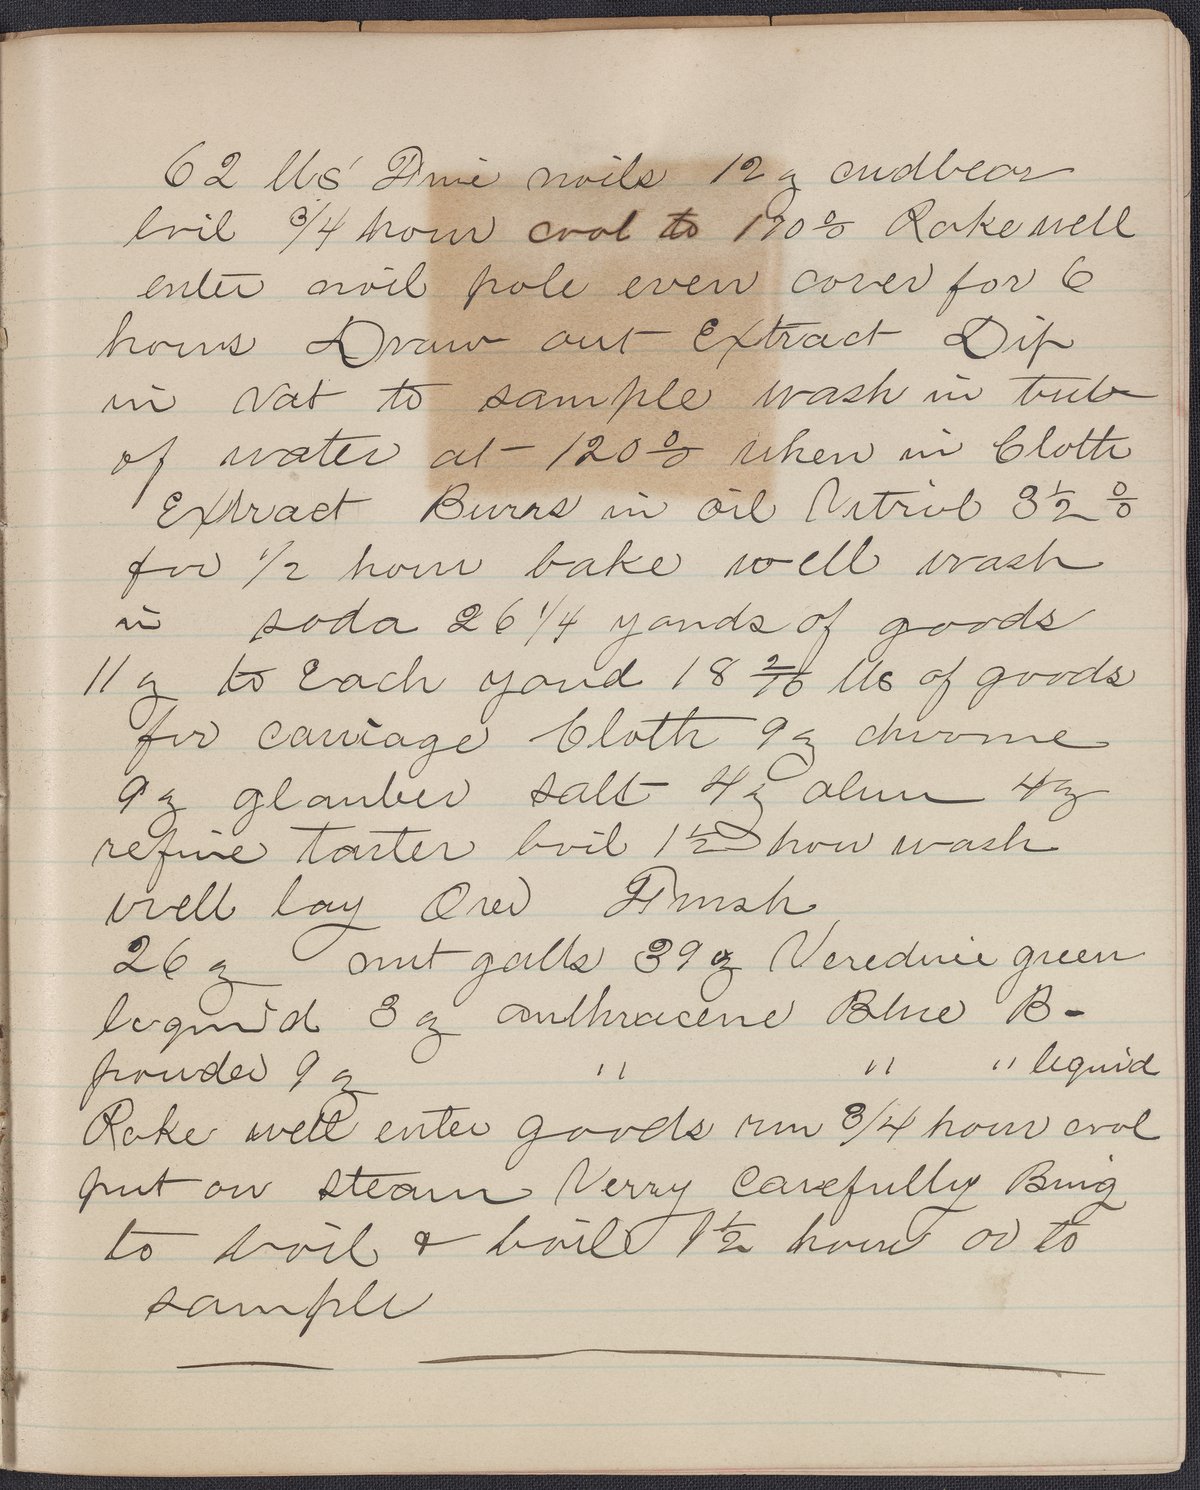 62 lbs' Fine noils 12 oz cudbear
boil 3/4 hour cool to 190 % Rake well
enter noil pole even cover for 6
hours Draw out Extract Dip
in vat to sample wash in tub
of water at 120 % when in Cloth
Extract Burrs in oil Vitriol 3 1/2 %
for 1/2 hour bake well wash
in soda 26 1/4 yards of goods
11 oz to Each yard 18 2/16 lbs of goods
for carriage Cloth 9 oz chrome
9 oz glauber salt 4 oz alum 4 oz
refine tarter boil 1 1/2 hour wash
well lay Over Finish
26 oz nut galls 39 oz Veredine green
liquid 3 oz anthracene Blue B-
powder 9 oz " " " liquid
Rake well enter goods run 3/4 hour cool
put on steam Verry Carefully Bring
to boil & boil 1 1/2 hour or to
sample